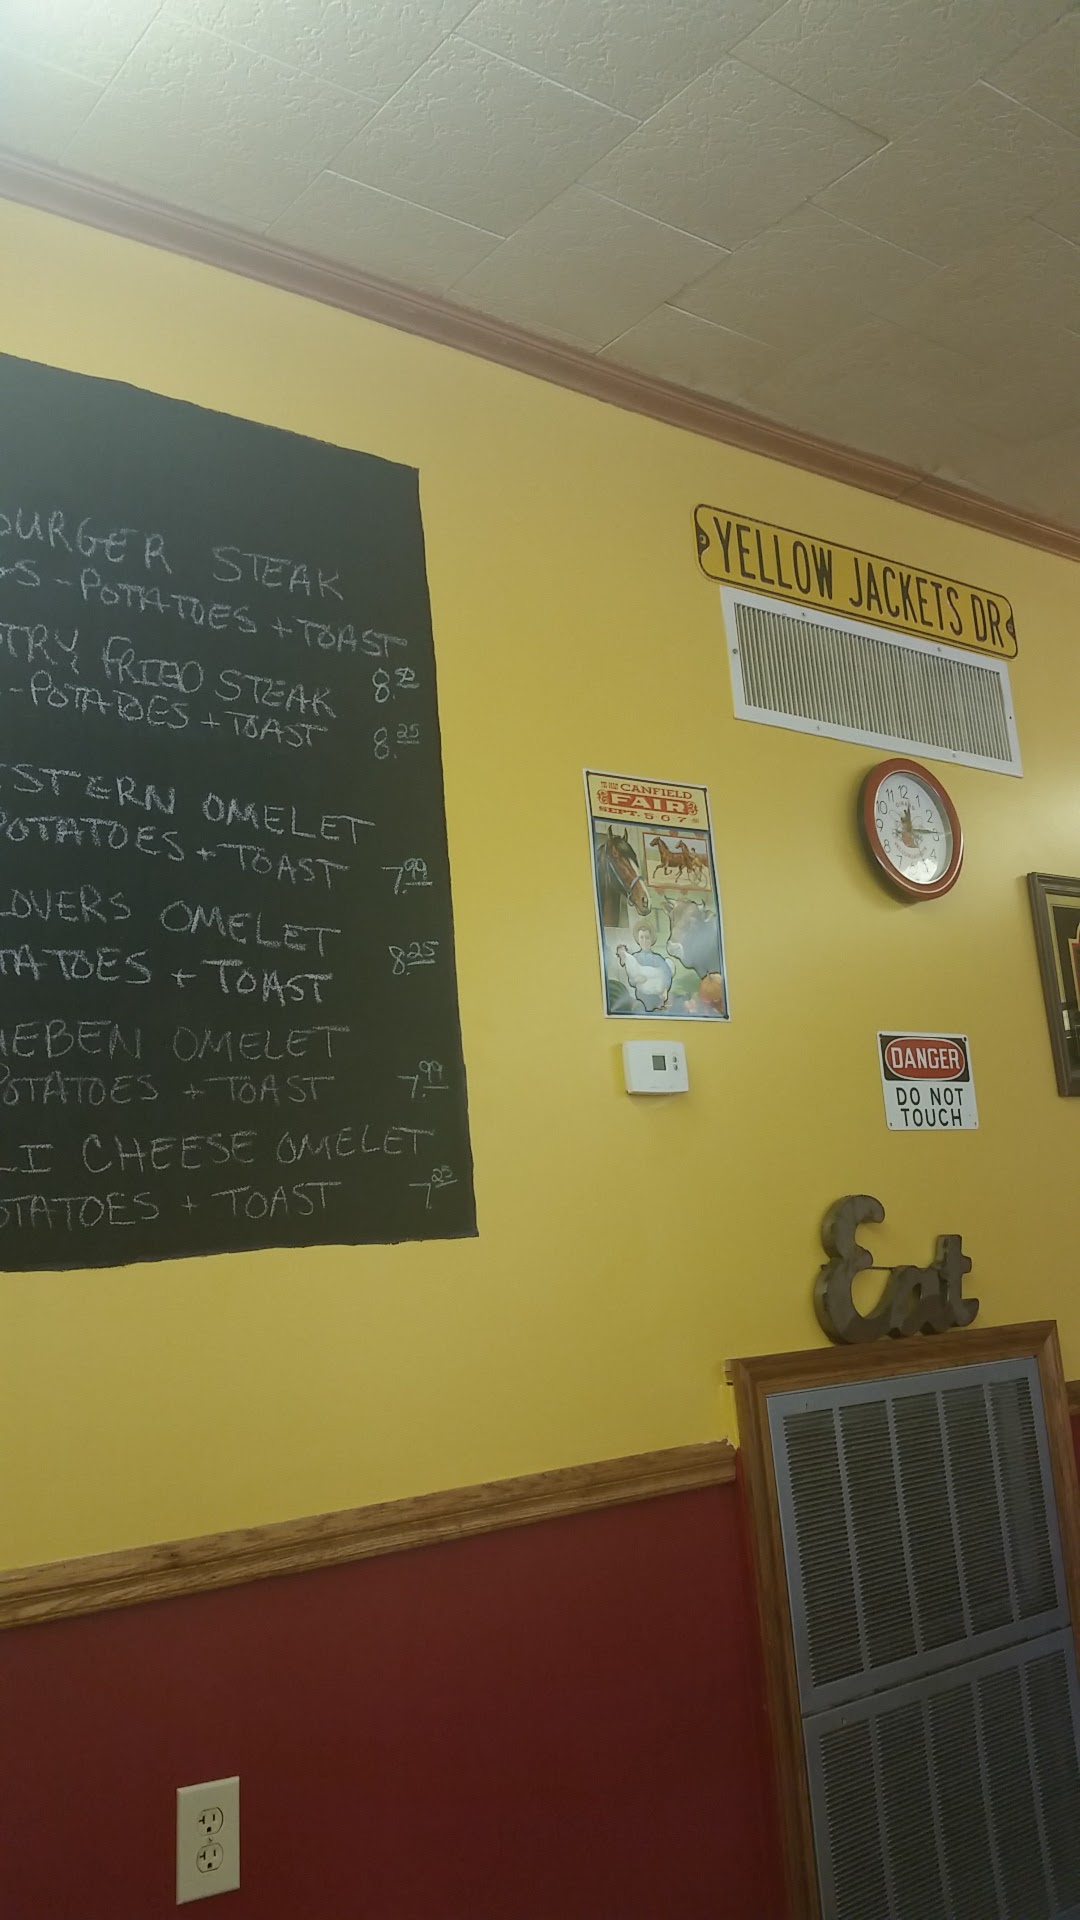 BURGER STEAK
GS - POTATOES + TOAST
8.50
TRY FRIED STEAK
- POTATOES + TOAST 8.25
STERN OMELET
POTATOES + TOAST 7.99
LOVERS OMELET
TATOES + TOAST 8.25
HEBEN OMELET
POTATOES + TOAST 7.99
LI CHEESE OMELET
OTATOES + TOAST 7.25
YELLOW JACKETS DR
CANFIELD
FAIR
SEPT. 5·6·7
11 12 1
10
9 3
8 4
7
DANGER
DO NOT
TOUCH
Eat